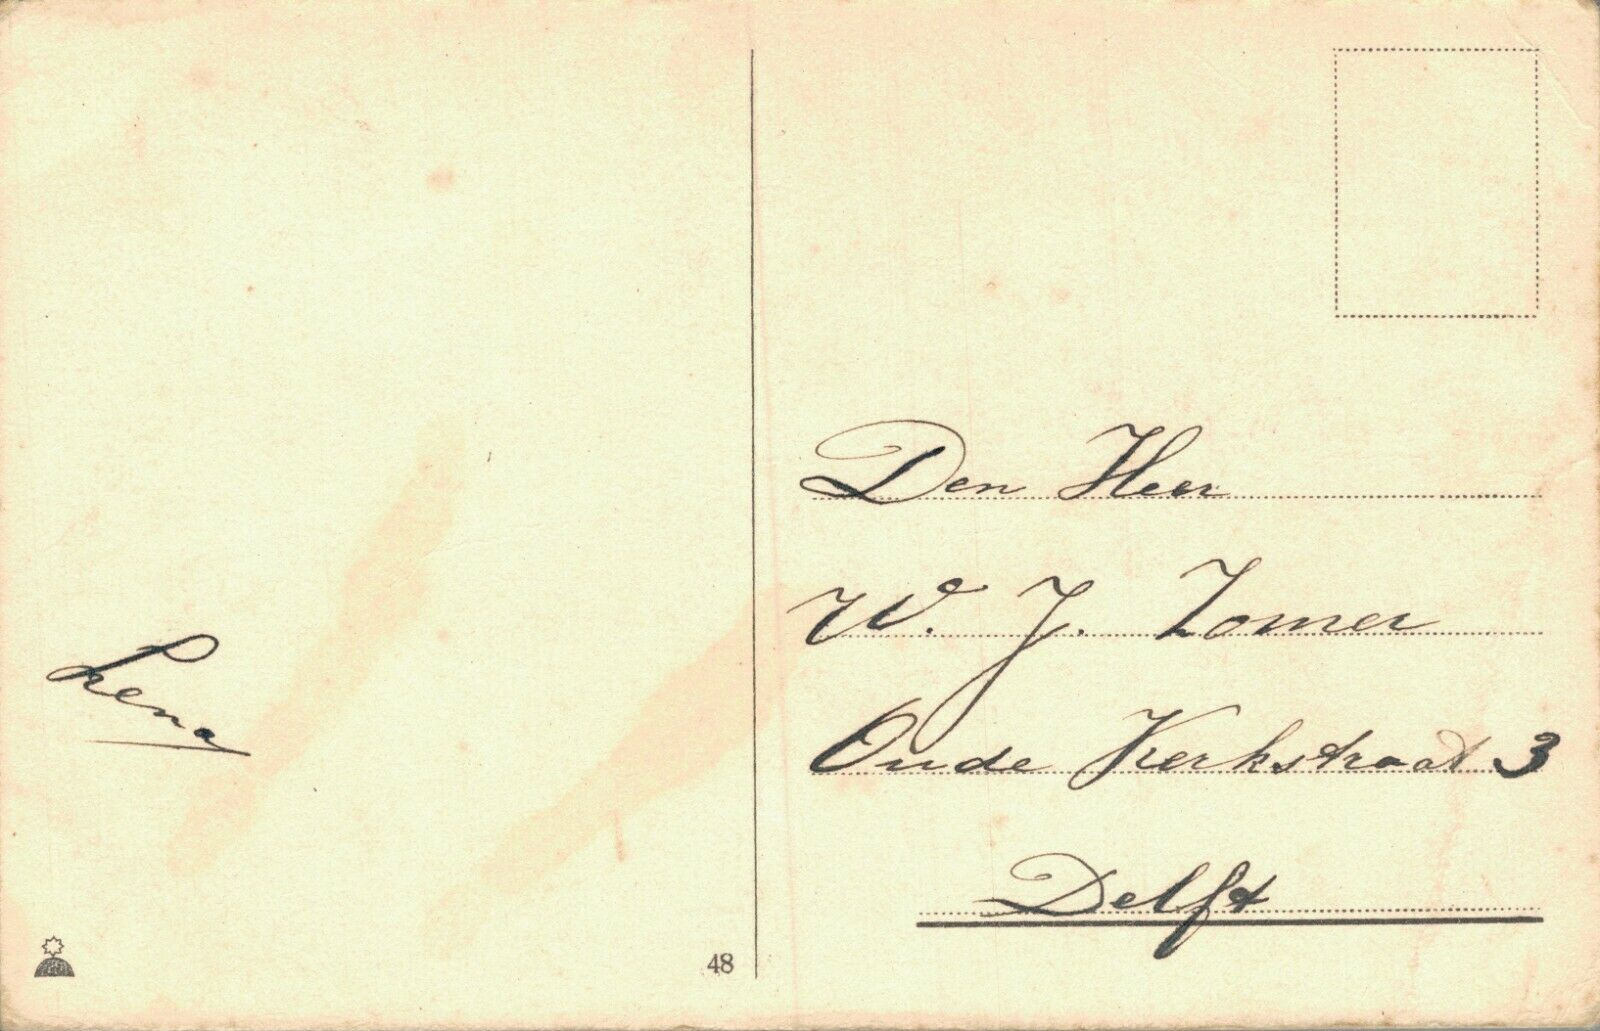 Lena
48
Den Heer
W. J. Zomer
Oude Kerkstraat 3
Delft